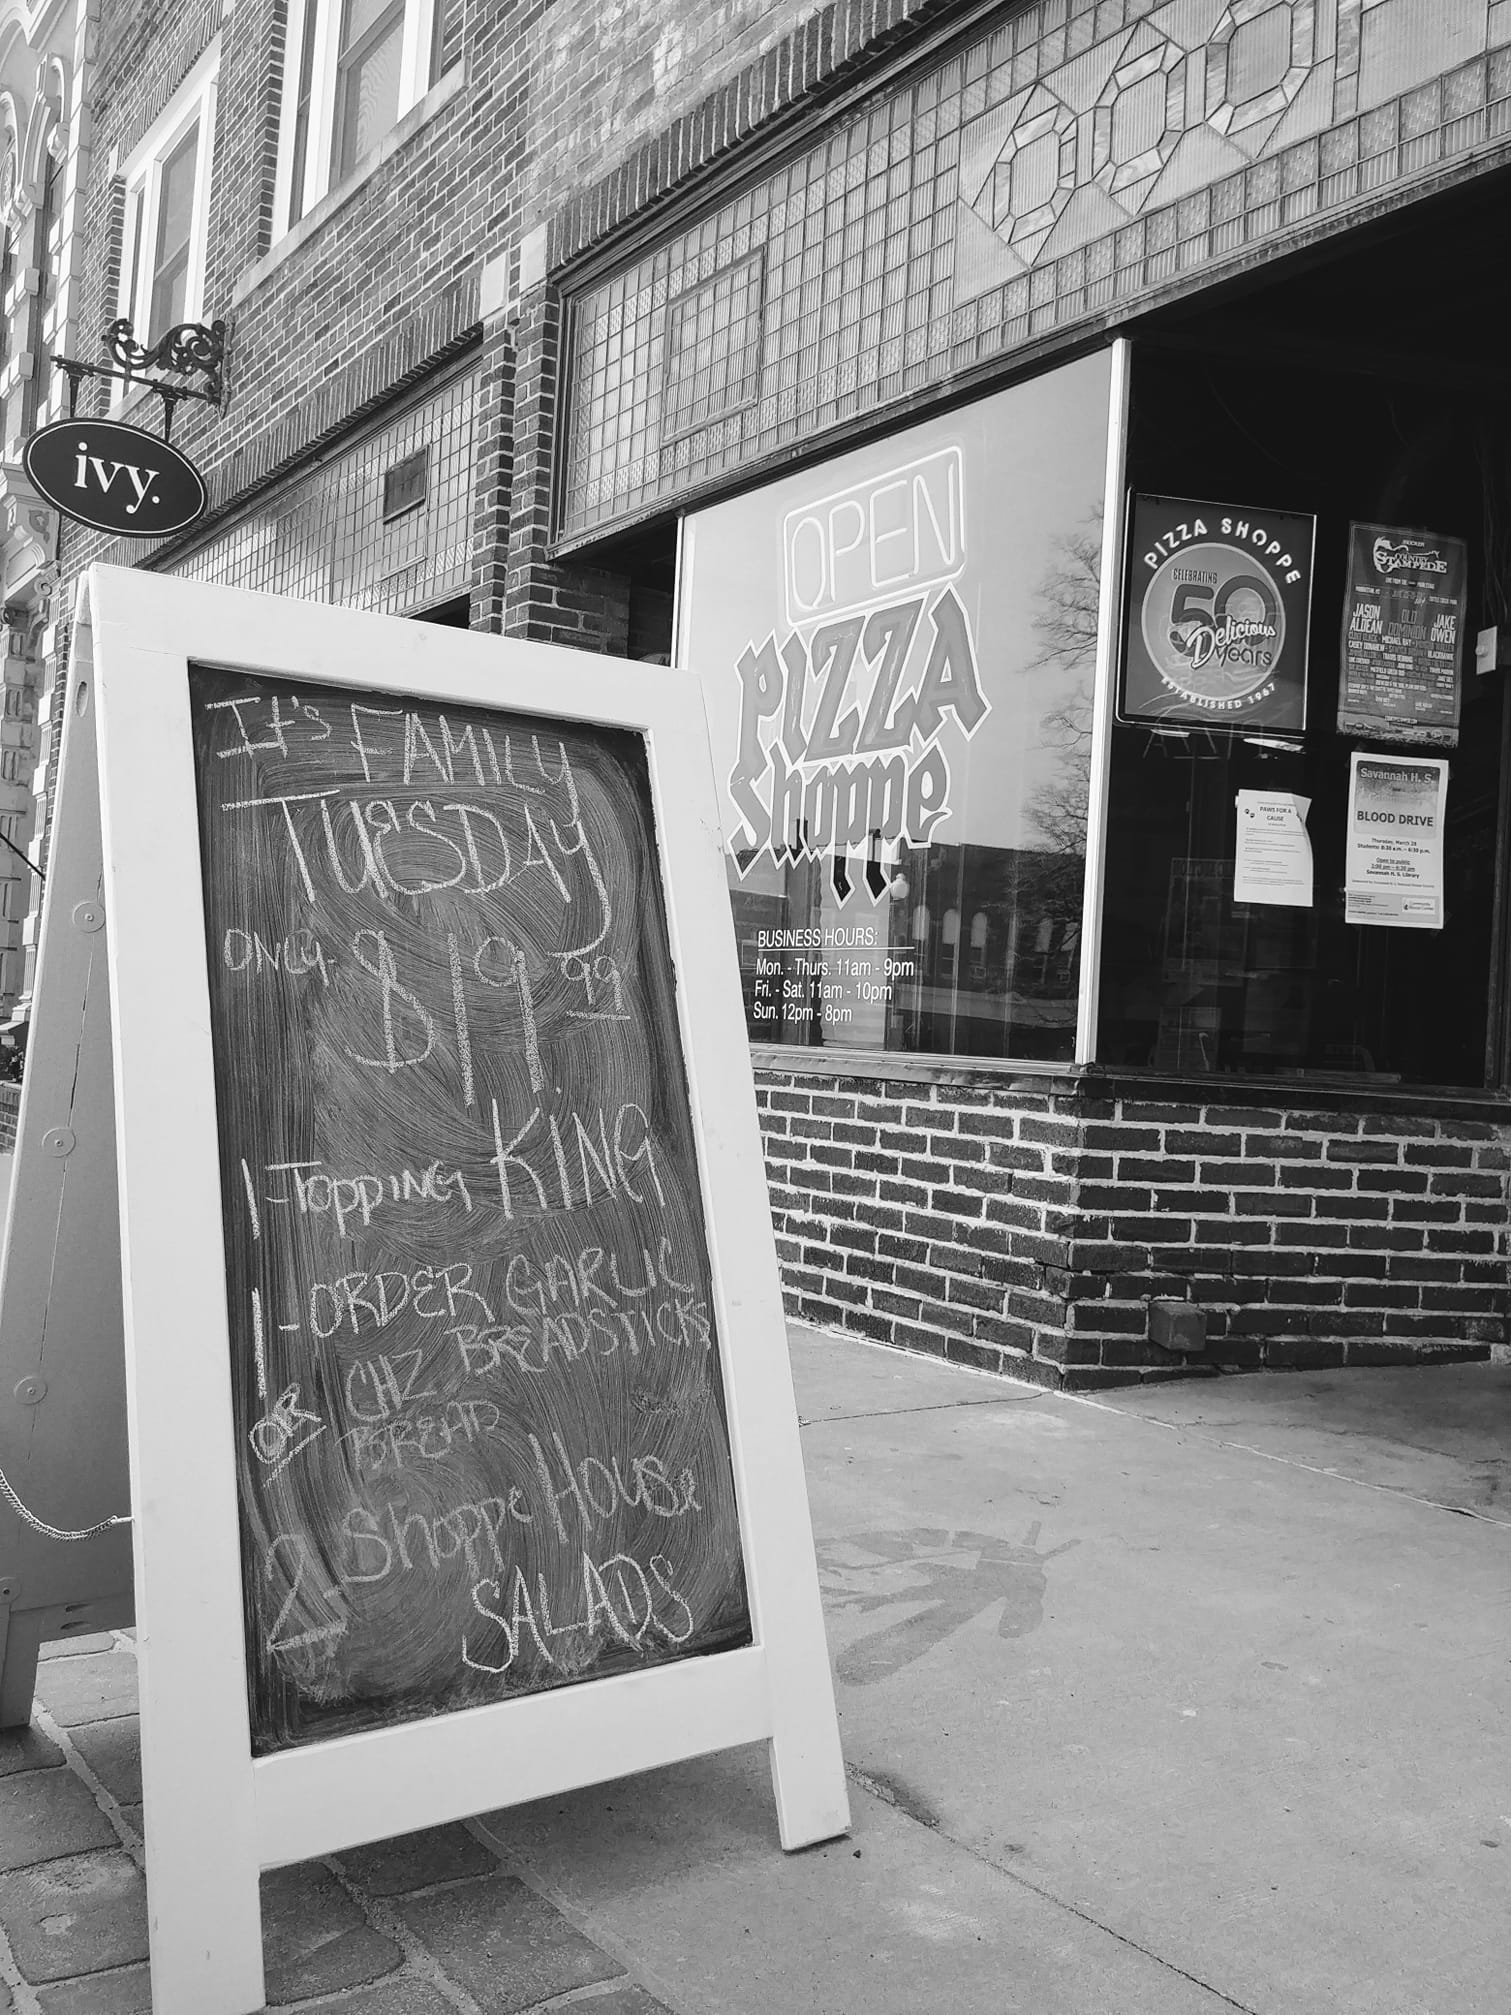 ivy.
It's FAMILY
TUESDAY
ONLY- $19.99
1-Topping KING
1-ORDER GARLIC
BREADSTICKS
OR CHZ
BREAD
2-Shoppe House
SALADS
OPEN
PIZZA
Shoppe
BUSINESS HOURS:
Mon. - Thurs. 11am - 9pm
Fri. - Sat. 11am - 10pm
Sun. 12pm - 8pm
PIZZA SHOPPE
CELEBRATING
50
Delicious
Years
ESTABLISHED 1967
COUNTRY
STAMPEDE
JASON
ALDEAN
OLD
DOMINION
JAKE
OWEN
PAWS FOR A
CAUSE
Savannah H. S.
BLOOD DRIVE
Thursday, March 28
Students: 8:30 a.m. – 6:30 p.m.
Open to public
Savannah H. S. Library